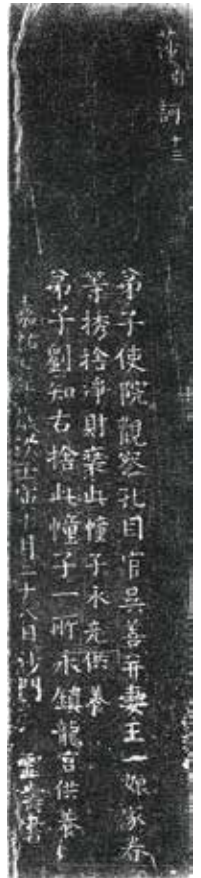 莎訶十三
弟子使院觀察孔目官吳善并妻王一娘家眷
等捨淨財藥此幢子永充供養
弟子劉知右捨此幢子一所永鎮龍宮供養
嘉祐年歲次壬寅十月二十八日沙門靈書